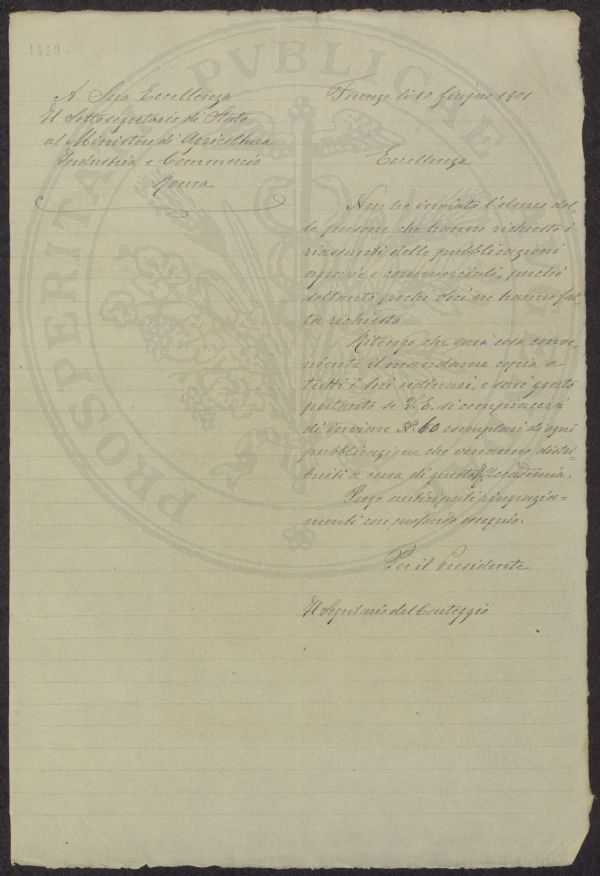 1419
A Sua Eccellenza
Il Sottosegretario di Stato
al Ministero di Agricoltura
Industria e Commercio
Roma
Firenze li 10 Giugno 1901
Eccellenza
Non ho inviato l'elenco del-
le persone che hanno richiesto i
riassunti delle pubblicazioni
agrarie e commerciali, perché
soltanto pochi Soci ne hanno fat-
ta richiesta
Ritengo che sarà cosa conve-
niente il mandarne copia a
tutti i Soci ordinari, e sarò grato
pertanto se V. E. si compiacerà
di inviare N. 60 esemplari di ogni
pubblicazione che verranno distri-
buiti a cura di questa R. Accademia.
Porgo anticipati ringrazia-
menti con profondo ossequio.
Per il Presidente
Il Segretario del Carteggio
PROSPERITA
PVBLICAE